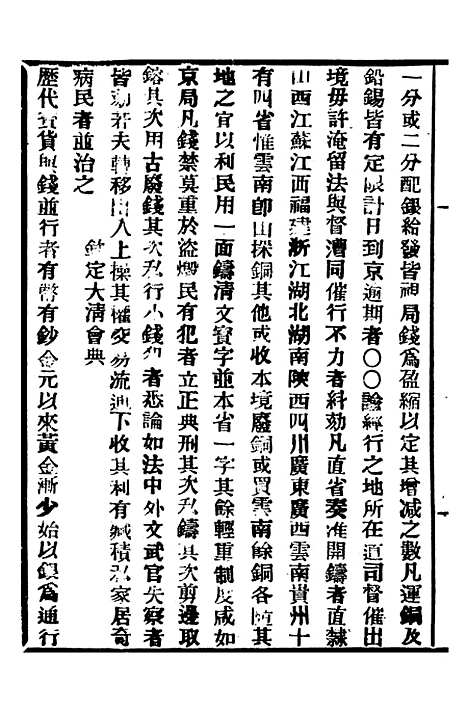 一分或二分配銀給發皆視局錢爲盈縮以定其增減之數凡運銅及
鉛錫皆有定限計日到京逾期者〇〇論經行之地所在道司督催出
境毋許淹留法與督漕同催行不力者糾劾凡直省奏准開鑄者直隸
山西江蘇江西福建浙江湖北湖南陝西四川廣東廣西雲南貴州十
有四省惟雲南卽山採銅其他或收本境廢銅或買雲南餘銅各隨其
地之宜以利民用一面鑄清文寶字並本省一字其餘輕重制度咸如
京局凡錢禁莫重於盜燬民有犯者立正典刑其次私鑄其次剪邊取
鎔其次用古廢錢其次私行小錢犯者悉論如法中外文武官失察者
皆劾若夫轉移出入上操其權交易流通下收其利有緘積私家居奇
病民者並治之　欽定大淸會典
歷代食貨與錢並行者有幣有鈔金元以來黃金漸少始以銀爲通行